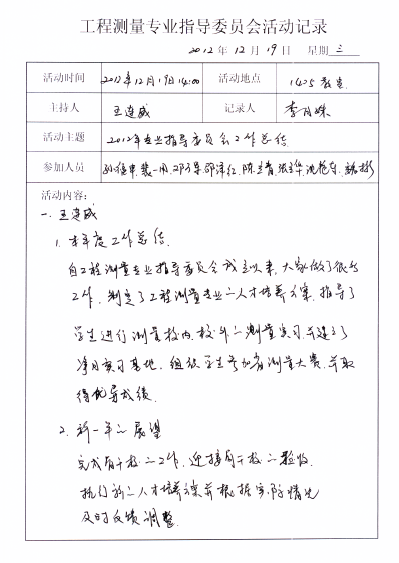 工程测量专业指导委员会活动记录
2012 年 12 月 19 日 星期 三
活动时间 2012年12月19日14:00 活动地点 1405教室
主持人 王连威 记录人 李月姝
活动主题 2012年专业指导委员会工作总结
参加人员
活动内容:
一、王连威
1. 本年度工作总结.
自工程测量专业指导委员会成立以来,大家做了很多
工作,制定了工程测量专业的人才培养方案,指导了
学生进行测量校内、校外的测量实习,并建立了
实习基地,组织学生参加省测量大赛,并取
得优异成绩.
2. 新一年的展望
完成骨干校的工作,迎接骨干校的验收.
执行新的人才培养方案并根据实际情况
及时反馈调整.